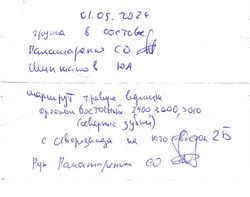 01.05.2024
группа в составе
Паламаренко СО
Шинкалов ЮА
маршрут траверс вершин
Орленок Восточный 2900, 3000, 3010
(северные зубья)
с северозапада на юго восток 2Б
Рук Паламаренко СО